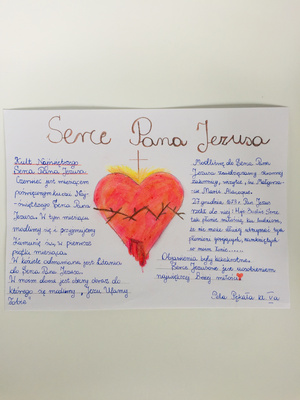 Serce Pana Jezusa
Kult Najświętszego
Serca Pana Jezusa.
Czerwiec jest miesiącem
poświęconym kultu Naj-
świętszego Serca Pana
Jezusa. W tym miesiącu
modlimy się i przyjmujemy
Komunię św. w pierwsze
piątki miesiąca.
W kościele odmawiana jest litania
do Serca Pana Jezusa.
W moim domu jest obraz do
którego się modlimy „Jezu Ufamy
Tobie"
Modlitwę do Serca Pana
Jezusa zawdzięczamy
zakonnicy, św. Małgorzacie
Marii
27 grudnia 1673 r. Pan Jezus
rzekł do niej: Moje Boskie Serce
tak płonie miłością ku ludziom,
że nie może dłużej utrzymać tych
płomieni gorejących, zamkniętych
w moim łonie...
Objawienia były kilkukrotne.
Serce Jezusowe jest uosobieniem
największej Bożej miłości
kl. Va